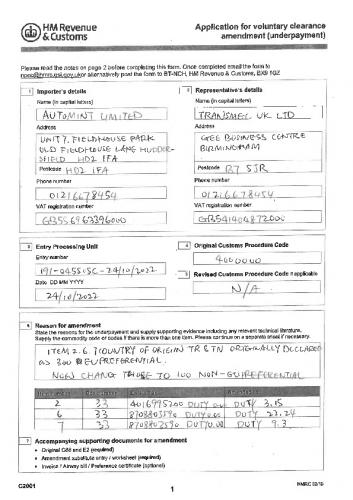 HM Revenue
& Customs
Application for voluntary clearance
amendment (underpayment)
Please read the notes on page 2 before completing this form. Once completed email the form to
or alternatively post the form to BT-NCH, HM Revenue & Customs, BX9 1GZ
1 Importer's details
Name (in capital letters)
AUTOMINT LIMITED
Address
UNIT 7, FIELDHOUSE PARK
OLD FIELDHOUSE LANE HUDDER-
SFIELD HD2 1FA
Postcode HD2 1FA
Phone number
01216678454
VAT registration number
GB556963396000
2 Representative's details
Name (in capital letters)
TRANSMEC UK LTD
Address
GEE BUSINESS CENTRE
BIRMINGHAM
Postcode B7 5JR
Phone number
01216678454
VAT registration number
GB541404872000
3 Entry Processing Unit
Entry number
191-045505C-24/10/2022
Date DD MM YYYY
24/10/2022
4 Original Customs Procedure Code
4000000
5 Revised Customs Procedure Code if applicable
N/A
6 Reason for amendment
State the reasons for the underpayment and supply supporting evidence including any relevant technical literature.
Supply the commodity code or codes if there is more than one item. Please continue on a separate sheet if necessary.
ITEM 2.6.7 COUNTRY OF ORIGIN TR & TN ORIGINALLY DECLARED
AS 300 PREFERENTIAL.
NEED CHANGE THOSE TO 100 NON-PREFERENTIAL
2 33 4016995700 DUTY 0.00 DUTY 3.15
6 33 DUTY 0.00 DUTY 22.24
7 33 DUTY 0.00 DUTY 9.3
7 Accompanying supporting documents for amendment
• Original C88 and E2 (required)
• Amendment substitute entry / worksheet (required)
• Invoice / Airway bill / Preference certificate (optional)
C2001
1
HMRC